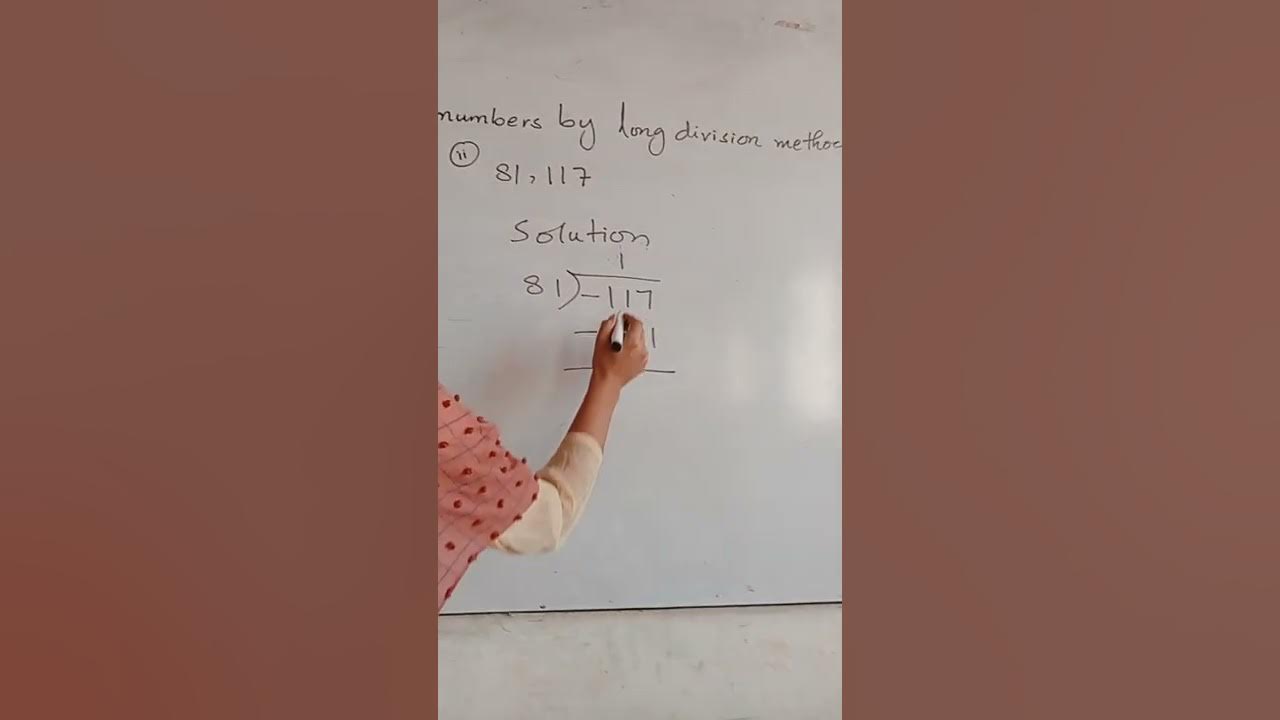 numbers by long division method
ii
81, 117
Solution
1
81)-117
- 1